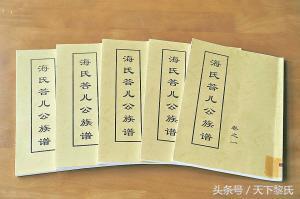 海氏答儿公族谱
海氏答儿公族谱
海氏答儿公族谱
海氏答儿公族谱
海氏答儿公族谱
卷之一
头条号／天下黎氏